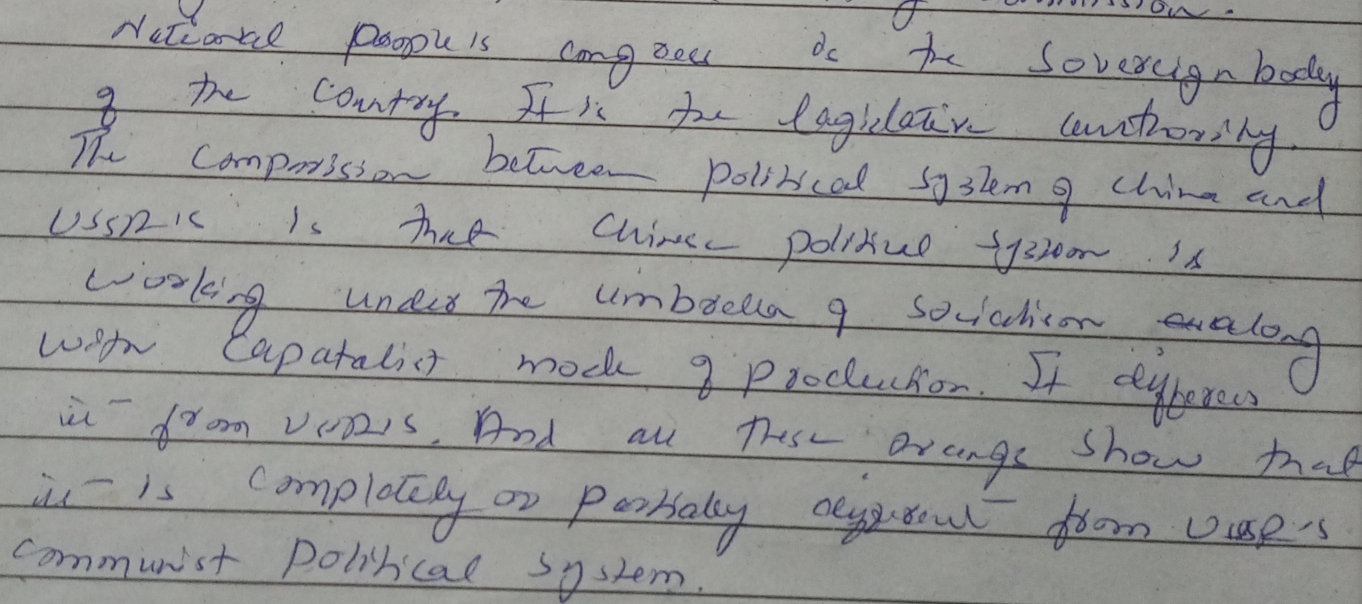 National people is congress is the sovereign body
of the country. It is the lagislative authority.
The comparission between political system of china and
USSR is is that Chinese political system is
working under the umbrella of socialism along
with Capatalist mode of production. It differes
it from USSR's. And all these show that
it is completely or partialey different from USSR's
communist political system.